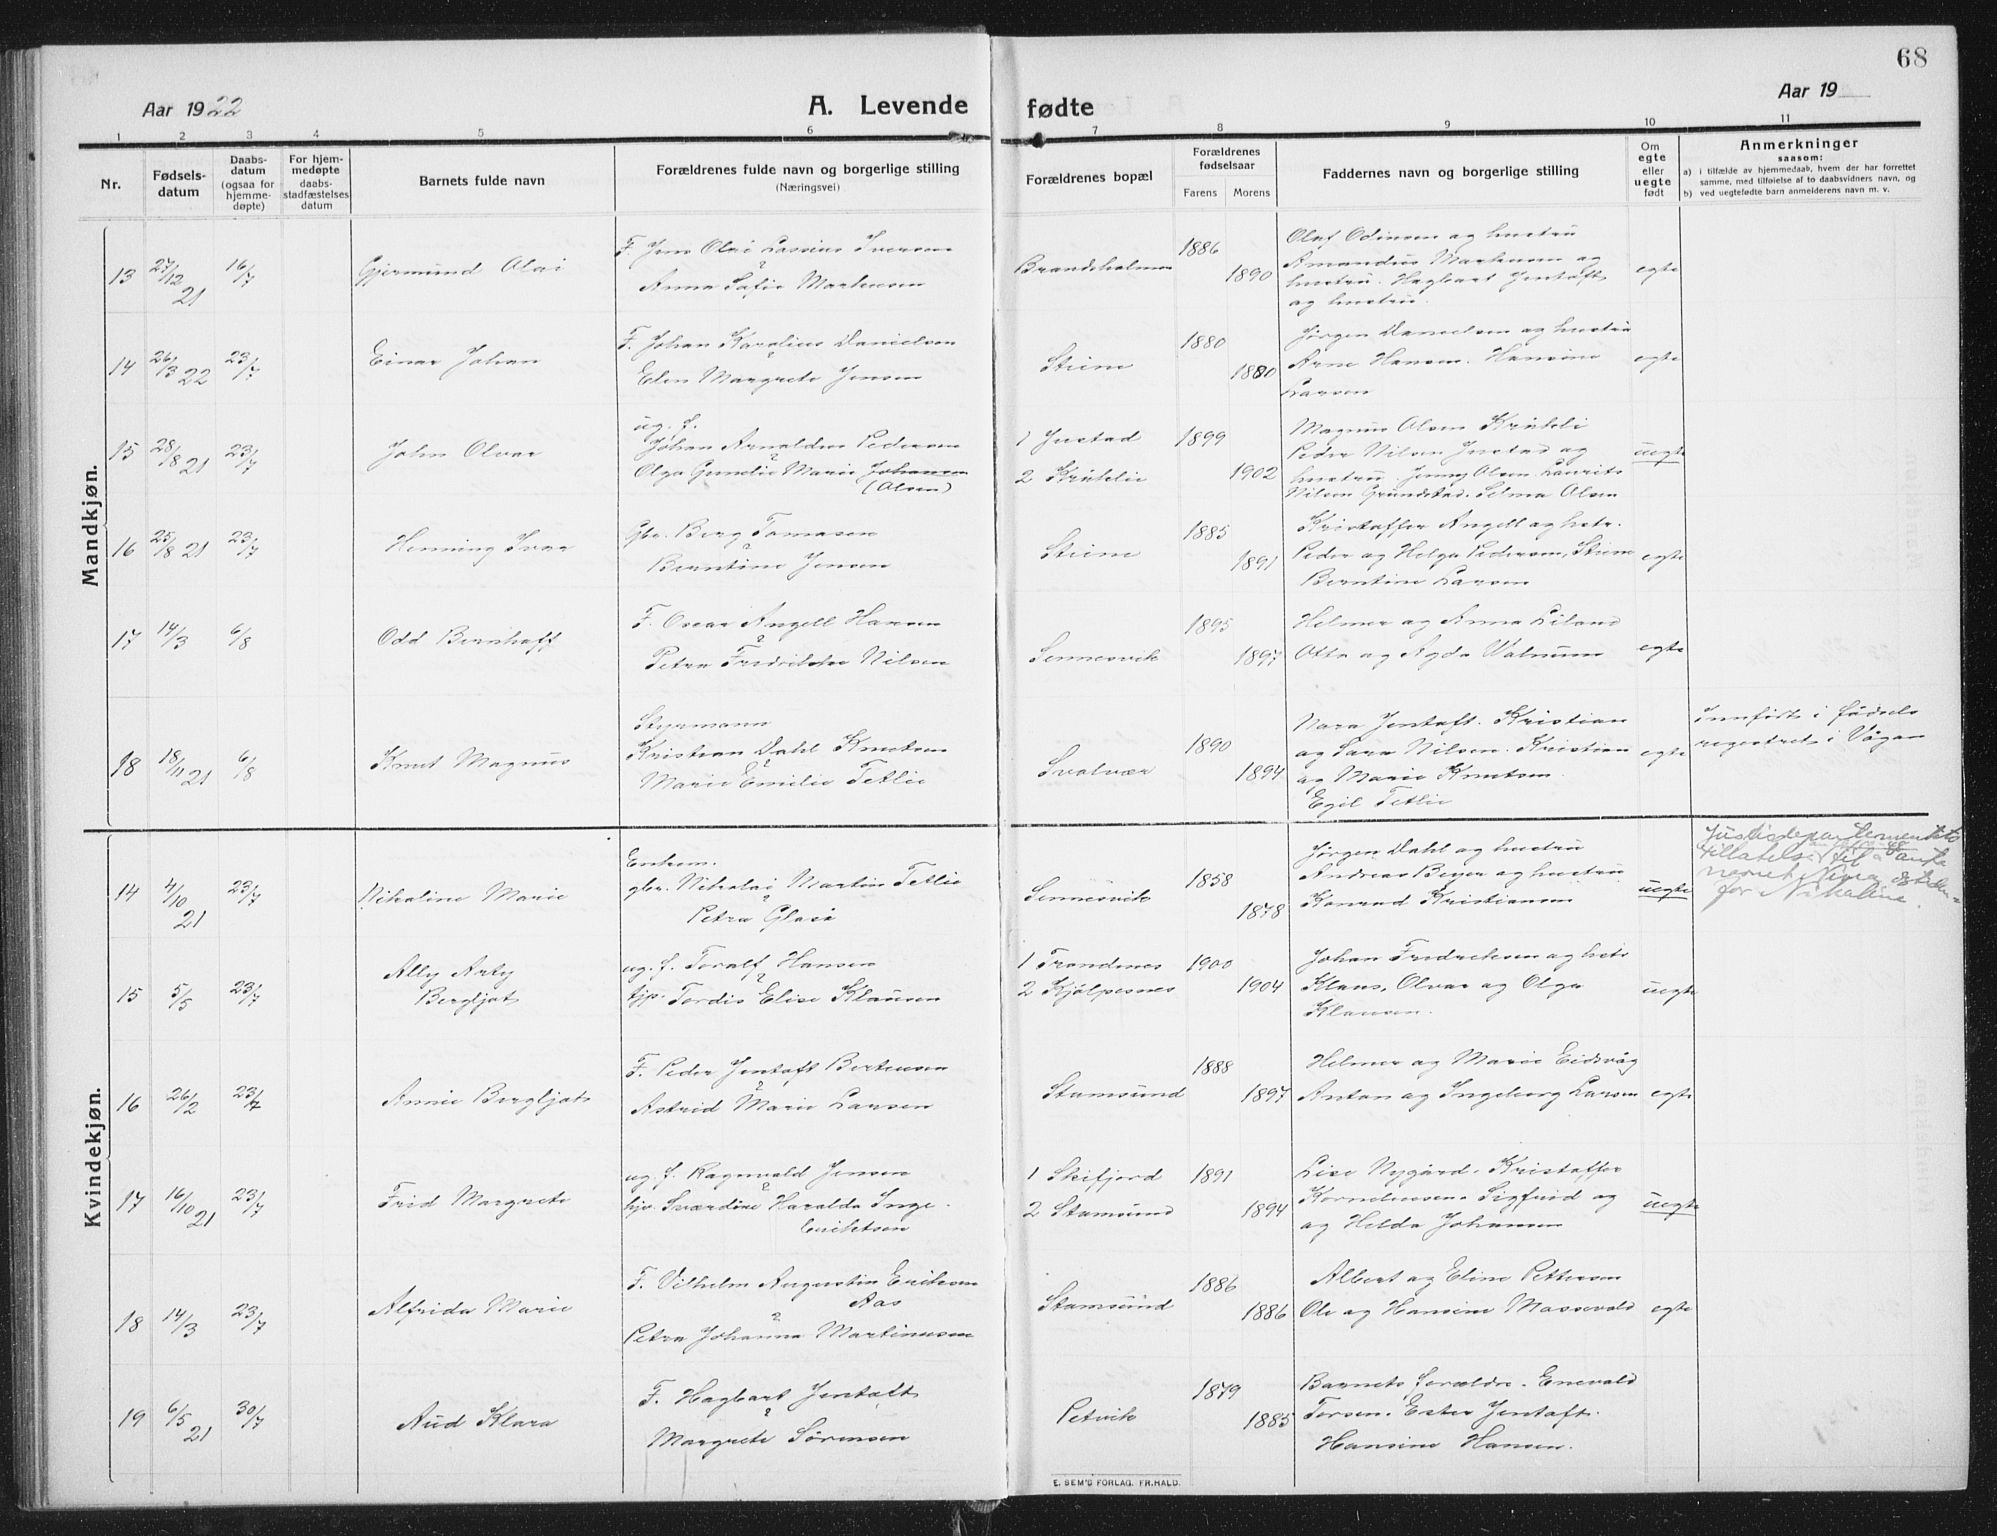 68
Aar 1922
A. Levende fødte
Aar 19
1 2 3 4 5 6 7 8 9 10 11
Nr.
Fødsels-
datum
Daabs-
datum
(ogsaa for
hjemme-
døpte)
For hjem-
medøpte
daabs-
stadfæstelses
datum
Barnets fulde navn
Forældrenes fulde navn og borgerlige stilling
(Næringsvei)
Forældrenes bopæl
Forældrenes
fødselsaar
Farens Morens
Faddernes navn og borgerlige stilling
Om
egte
eller
uegte
født
Anmerkninger
saasom:
a) i tilfælde av hjemmedaab, hvem der har forrettet
samme, med tilføielse af to daabsvidners navn, og
b) ved uegtefødte barn anmelderens navn m. v.
Mandkjøn.
13 27/12 21 16/7 Gjermund Olai
F. Jens Olai Lassius Iversen
&
Anna Sofie Markussen
1886
1890
Olaf Odinsen og hustru
Amandus Markussen og
hustru. Hagbart Jentoft
og hustru.
egte
14 26/3 22 23/7 Einar Johan
F. Johan Karolius Danielsen
&
Elen Margrete Jensen
Steine
1880
1880
Jørgen Danielsen og hustru
Arne Hansen. Hansine
Larsen
egte
15 28/8 21 23/7 John Olvar
ug. f.
Johan Arnoldus Pedersen
&
Olga Gunelie Marie Johansen
(Olsen)
1 Justad
2 Strühlie
1899
1902
Magnus Olsen
Peder Nilsen Justad og
hustru. Jenny Olsen. Laurits
Nilsen Grundstad. Selma Olsen
uegte
16 25/8 21 23/7 Henning Ivar
Gbr. Berg Tomasen
&
Berntine Jensen
Steine
1885
1891
Kristoffer Angell og hstr.
Peder og Helga Pedersen, Steine
Berntine Larsen
egte
17 14/3 6/8 Odd Bernhoff
F. Oscar Angell Hansen
&
Petra Fredrikke Nilsen
Sennesvik
1895
1897
Helmer og Anna Liland
Otto og Agda Walnum
egte
18 18/11 21 6/8 Knut Magnus
Styrmann
Kristian Dahl Knutsen
&
Marie Emilie Tetlie
Svolvær
1890
1894
Nora Jentoft. Kristian
og Sara Nilsen. Kristian
og Marie Knutsen.
Egil Tetlie
egte
Innført i fødsels
registret i Vågan
Kvindekjøn.
14 4/10 21 23/7 Nikoline Marie
Enkem.
gbr. Nikolai Martin Tetlie
&
Petra Glasø
Sennesvik
1858
1878
Jørgen Dahl og hustru
Andreas Beyer og hustru
Konrad Kristiansen
uegte
Justisdepartementets
tillatelse til å anta
navnet Nina istden-
for Nikoline.
15 5/5 23/7 Ally Arty
Bergljot
ug. f. Toralf Hansen
&
tjp. Tordis Elise Klausen
1 Trondenes
2 Kjølpesnes
1900
1904
Johan Fredriksen og hstr
Klaus, Olvar og Olga
Klausen.
uegte
16 26/2 23/7 Annie Bergljot
F. Peder Jentoft Berteusen
&
Astrid Marie Larsen
Stamsund
1888
1897
Helmer og Marie Eidsvåg
Anton og Ingeborg Larsen
egte
17 16/10 21 23/7 Frid Margrete
ug. f. Ragnvald Jensen
&
hjv. Sværdine Haralda Inge-
Eriktsen
1 Skifjord
2 Stamsund
1891
1894
Lise Nygård. Kristoffer
Korneliussen. Sigfrid og
og Helda Johansen
uegte
18 14/3 23/7 Alfrida Marie
F. Vilhelm Augustin Eriksen
Aas
&
Petra Johanna Martinussen
Stamsund
1886
1886
Albert og Eline Pettersen
Ole og Hansine Massevold
egte
19 6/5 21 30/7 Aud Klara
F. Hagbart Jentoft
&
Margrete Sørensen
Petvik
1879
1885
Barnets forældre. Enevald
Torsen. Ester Jentoft.
Hansine Hansen.
E. SEM'S FORLAG, FR.HALD.